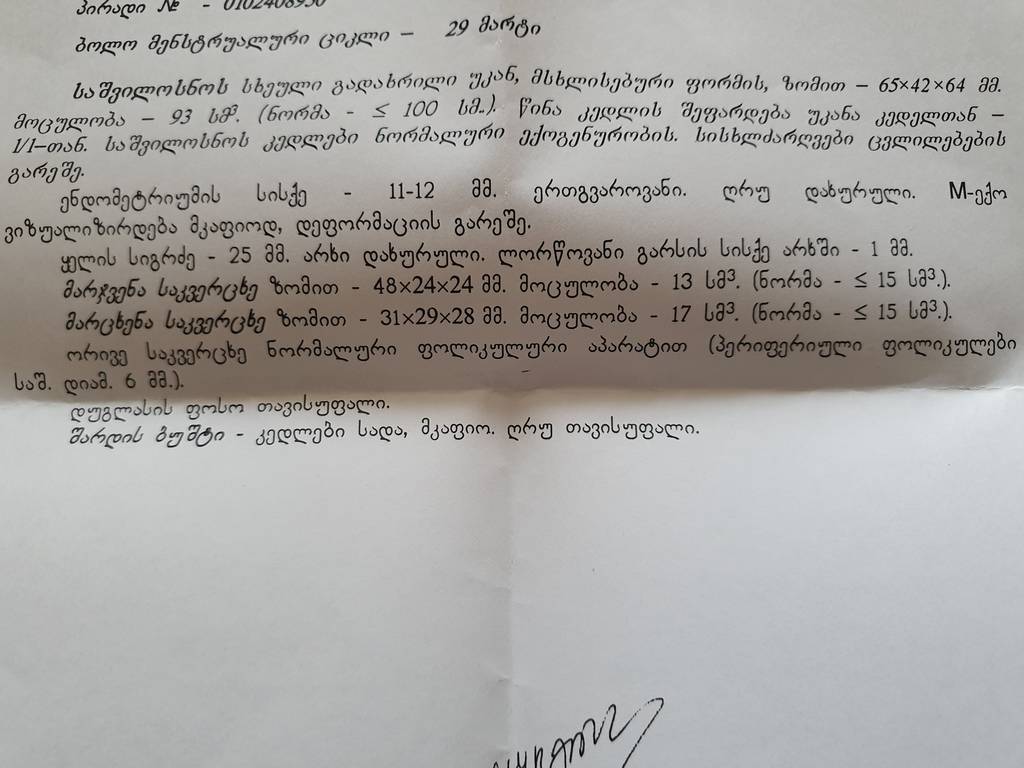 პირადი № - 0102408950
ბოლო მენსტრუალური ციკლი – 29 მარტი
საშვილოსნოს სხეული გადახრილი უკან, მსხლისებური ფორმის, ზომით – 65×42×64 მმ.
მოცულობა – 93 სმ³. (ნორმა - ≤ 100 სმ.). წინა კედლის შეფარდება უკანა კედელთან –
1/1–თან. საშვილოსნოს კედლები ნორმალური ექოგენურობის. სისხლძარღვები ცვლილებების
გარეშე.
ენდომეტრიუმის სისქე - 11-12 მმ. ერთგვაროვანი. ღრუ დახურული. M-ექო
ვიზუალიზირდება მკაფიოდ, დეფორმაციის გარეშე.
ყელის სიგრძე - 25 მმ. არხი დახურული. ლორწოვანი გარსის სისქე არხში - 1 მმ.
მარჯვენა საკვერცხე ზომით - 48×24×24 მმ. მოცულობა - 13 სმ³. (ნორმა - ≤ 15 სმ³.).
მარცხენა საკვერცხე ზომით - 31×29×28 მმ. მოცულობა - 17 სმ³. (ნორმა - ≤ 15 სმ³.).
ორივე საკვერცხე ნორმალური ფოლიკულური აპარატით (პერიფერიული ფოლიკულები
საშ. დიამ. 6 მმ.).
დუგლასის ფოსო თავისუფალი.
შარდის ბუშტი - კედლები სადა, მკაფიო. ღრუ თავისუფალი.